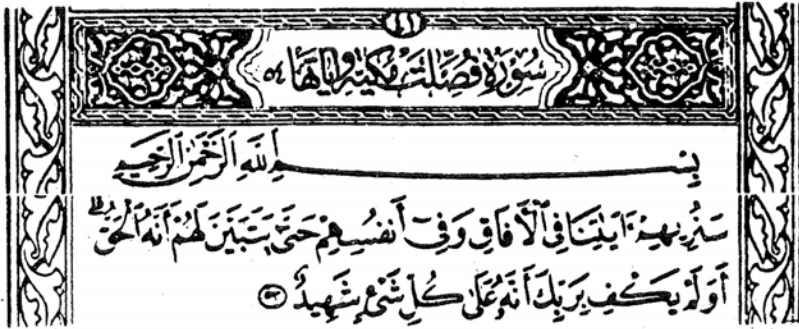 ٤١
سُورَةُ فُصِّلَتْ مَكِّيَّة وَآيَاتُهَا ٥٤
بِسْمِ ٱللَّهِ ٱلرَّحْمَٰنِ ٱلرَّحِيمِ
سَنُرِيهِمْ ءَايَٰتِنَا فِى ٱلْءَافَاقِ وَفِىٓ أَنفُسِهِمْ حَتَّىٰ يَتَبَيَّنَ لَهُمْ أَنَّهُ ٱلْحَقُّ ۗ
أَوَلَمْ يَكْفِ بِرَبِّكَ أَنَّهُۥ عَلَىٰ كُلِّ شَىْءٍ شَهِيدٌ ٥٣